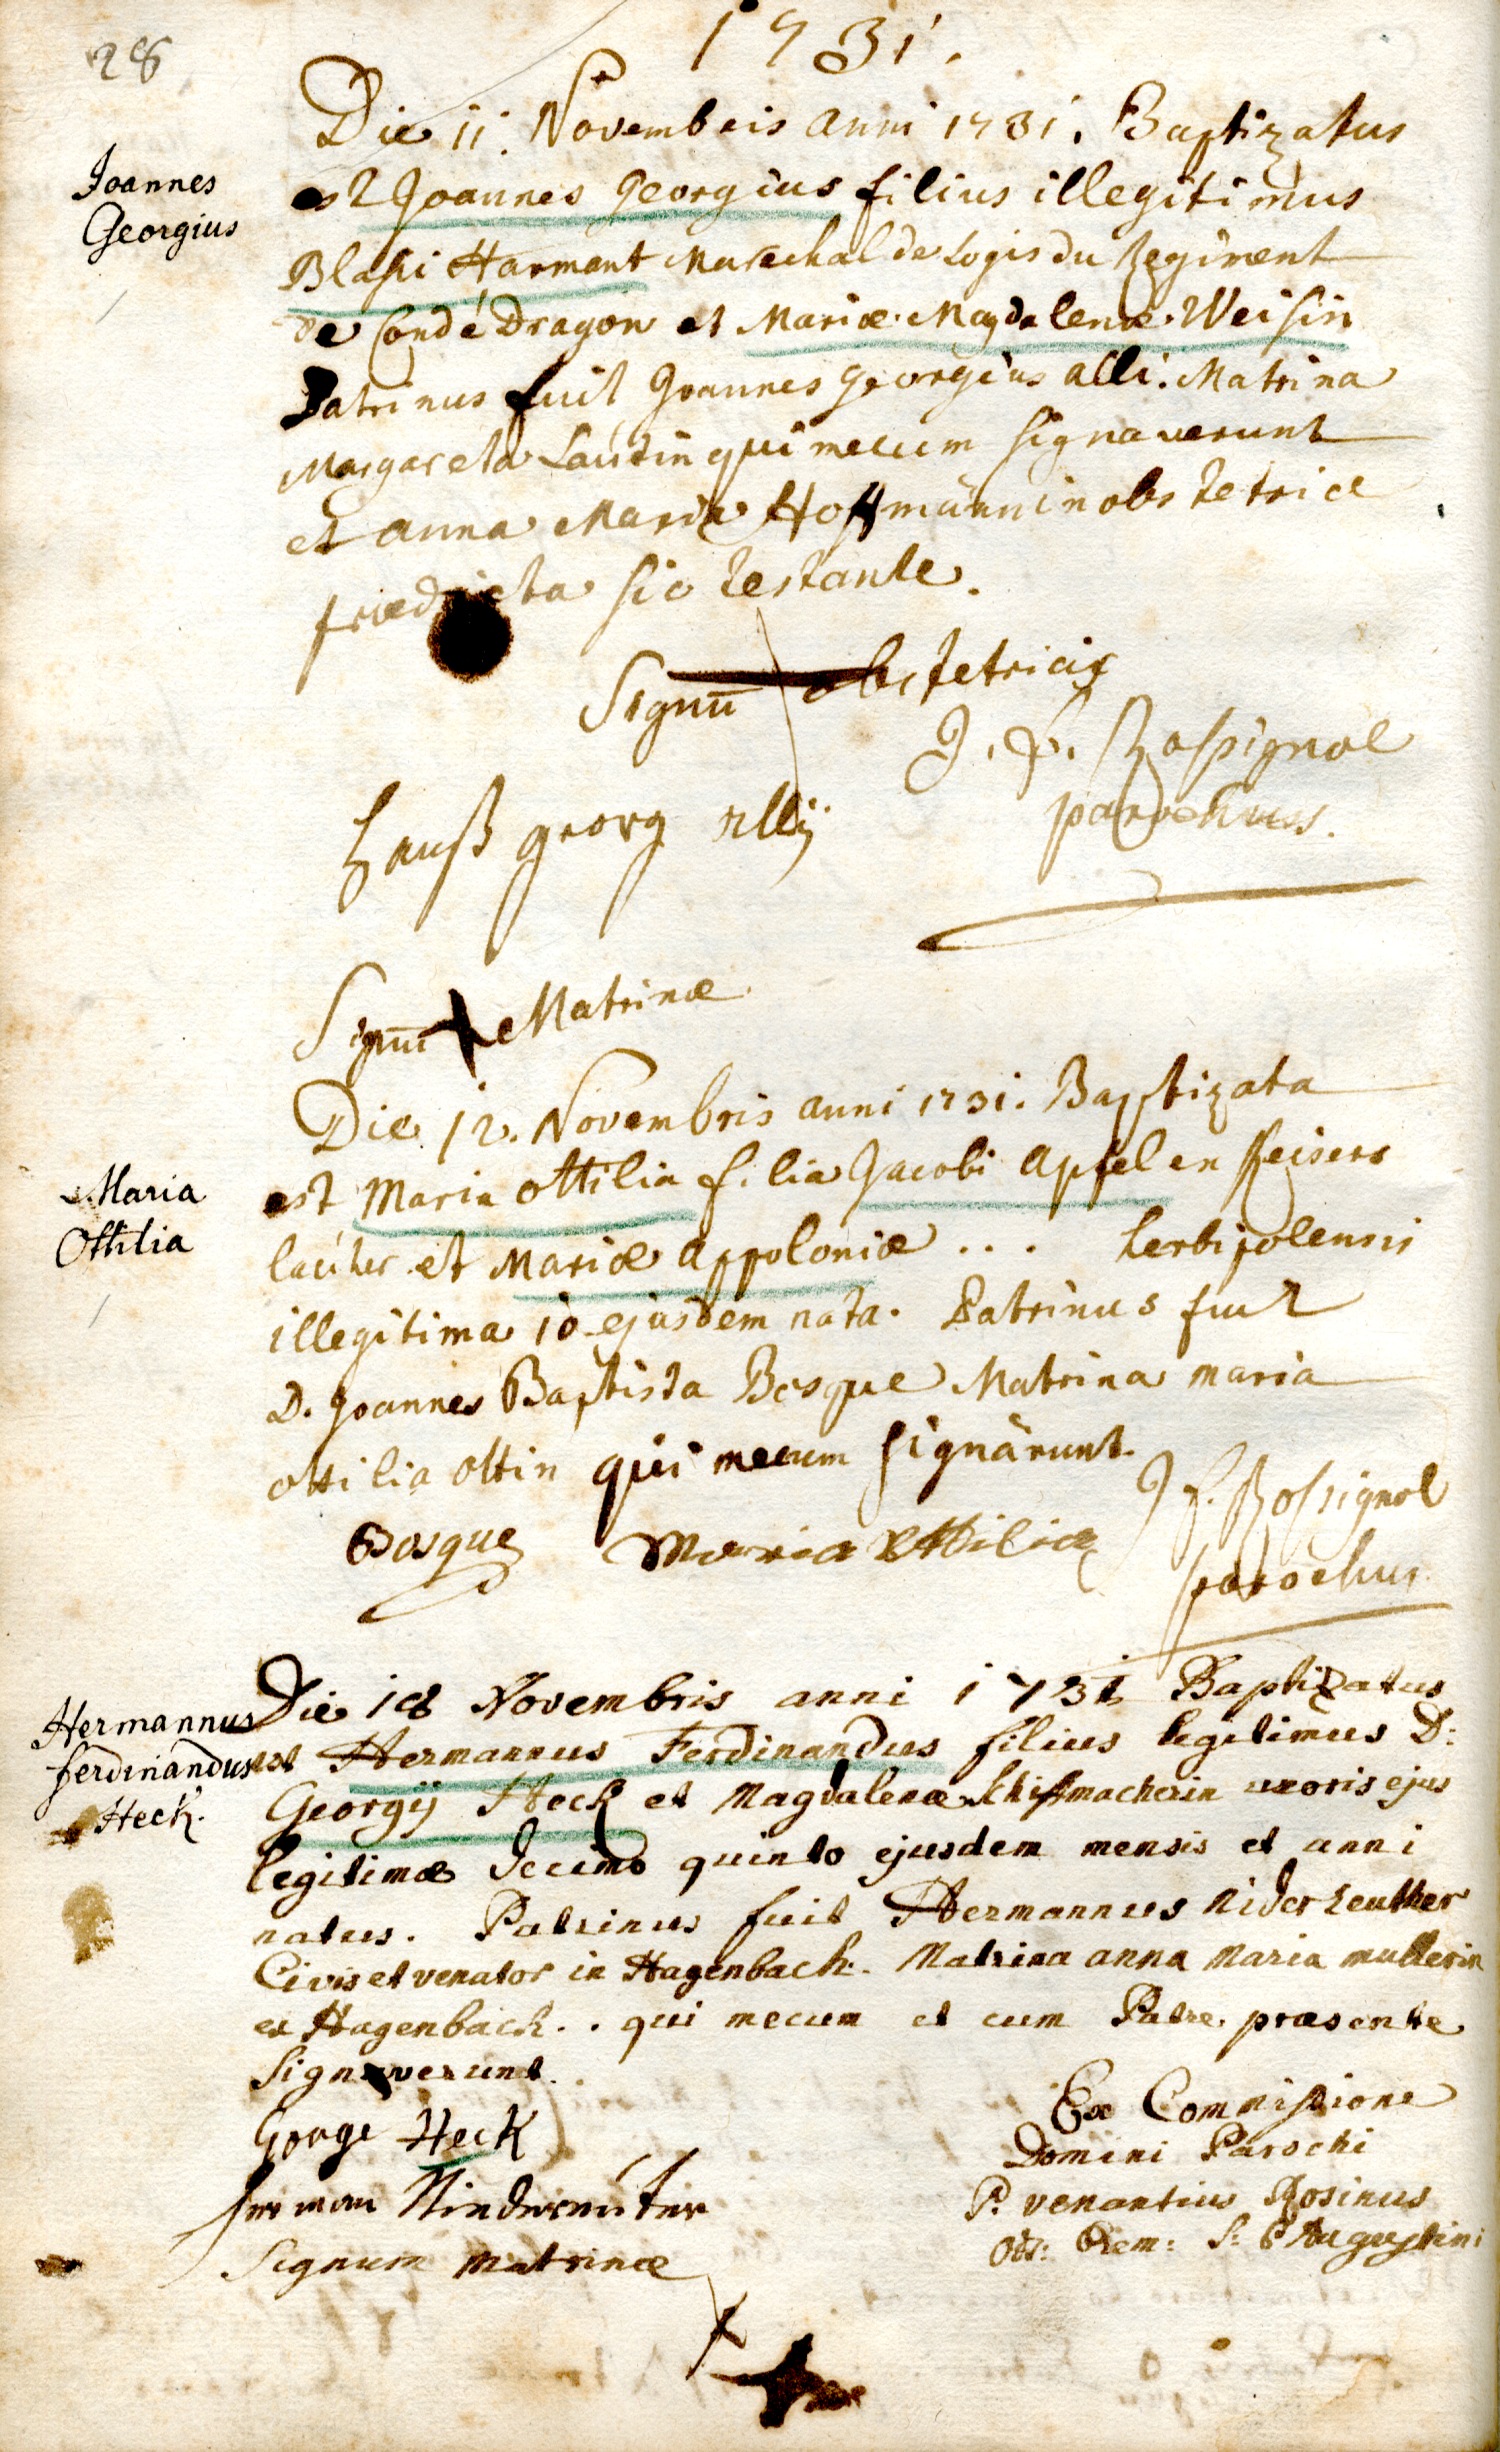 28
1731.
Die 11. Novembris anni 1731. Baptizatus
Joannes
Georgius
est Joannes Georgius filius illegitimus
Blasii Harmant Marechal de Logis du Regiment
de Condé Dragon et Mariæ Magdalenæ Weisin
Patrinus fuit Joannes Georgius alli. Matrina
Margareta Laúdin qui mecum signaverunt
et anna Maria Hoffmännin obstetrice
prædicta sic testante.
Signū obstetricis
J. F. Rossignol
parochus.
Hanß georg Allÿ
Signū Matrinæ
Die 12. Novembris anni 1731. Baptizata
Maria
Ottilia
est Maria Ottilia filia Jacobi Apfel en Keisers
laúter et Mariæ Appoloniæ ... herbipolensis
illegitima 10 ejusdem nata. Patrinus fuit
D. Joannes Baptista Bosque Matrina maria
ottilia ottin qui mecum signârunt.
Bosque Maria Ottilia J F. Rossignol
parochus
Hermannus
ferdinandus
Heck.
Die 18 Novembris anni 1731 Baptizatus
est Hermannus Ferdinandus filius legitimus D:
Georgij Heck et Magdalenæ schiffmacherin uxoris ejus
legitimæ decimo quinto ejusdem mensis et anni
natus. Patrinus fuit Hermannus Niderreuther
Civis et venator in Hagenbach. Matrina anna Maria mullerin
ex Hagenbach.. qui mecum et cum Patre præsente
signaverunt.
Gorge Heck
Ex Commissione
Domini Parochi
P. venantius Rosinus
Ord: Erem: S: P Augustini
herman Niderreúter
Signum matrinæ